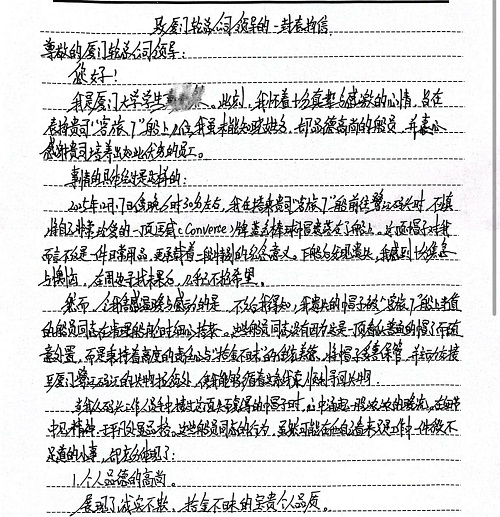 致厦门轮总公司领导的一封表扬信
尊敬的厦门轮总公司领导：
您好！
我是厦门大学学生 此刻，我怀着十分真挚与感激的心情，旨在
表扬贵司"客旅7"船上几位我虽未能知晓姓名，却品德高尚的船员，并衷心
感谢贵司培养出如此优秀的员工。
事情的具体经过是这样的：
2025年 月17日傍晚6时30分左右，我在搭乘贵司"客旅7"船前往 码头时，不慎
将自己非常珍爱的一顶匡威（Converse）牌 棒球帽遗落在了船上。这顶帽子对我
而言不仅是一件日常用品，更承载着一段特别的纪念意义。下船后发现遗失，我感到十分焦急
与懊恼， 寻找未果后，几乎不抱希望。
然而，令我感温暖与感动的是，不久我得知，我遗失的帽子被"客旅7"船上值
的船员同志在清理船舱时细心拾获。这些船员同志没有因仅是一顶 的帽子而随
意处置，而是秉持着高度的责任心与"拾金不昧"的 美德，将帽子妥善保管，并主动依接
至厦门 码头的失物招领处，使我能够循着 找来，顺利寻回失物。
当我从码头工作人员手中接过这顶失而复得的帽子时，心中涌起一股浓浓的暖流。在细节
中见精神，于平凡处显品格。这些船员同志的行为，虽然可能在他们自己看来只是工作中一件微不
足道的小事，却充分体现了：
1.个人品德的高尚。
展现了诚实不欺、拾金不昧的宝贵个人品质。